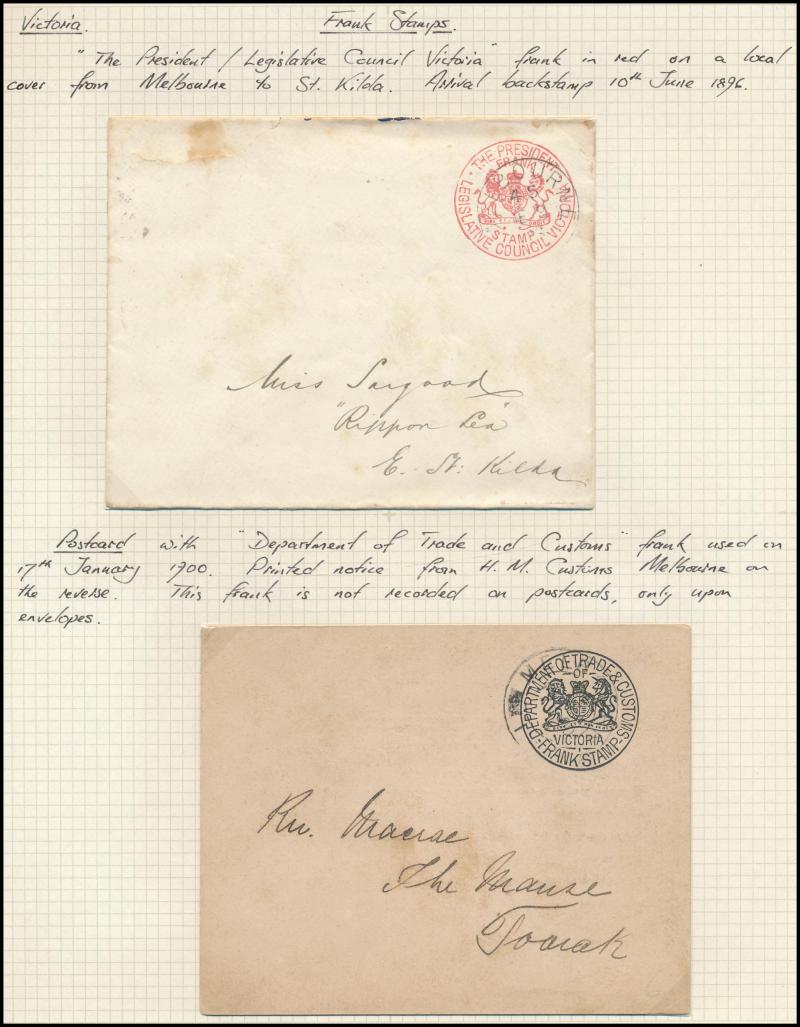 Victoria. Frank Stamps.
"The President / Legislative Council Victoria" frank in red on a local
cover from Melbourne to St. Kilda. Arrival backstamp 10th June 1896.
THE PRESIDENT
FRANK
STAMP
LEGISLATIVE COUNCIL VICTORIA
Miss Sargood
"Rippon Lea"
E. St. Kilda
Postcard with "Department of Trade and Customs" frank used on
17th January 1900. Printed notice from H. M. Customs Melbourne on
the reverse. This frank is not recorded on postcards, only upon
envelopes.
DEPARTMENT OF TRADE & CUSTOMS
OF
VICTORIA
FRANK STAMP
Rev. Macrae
The Manse
Toorak